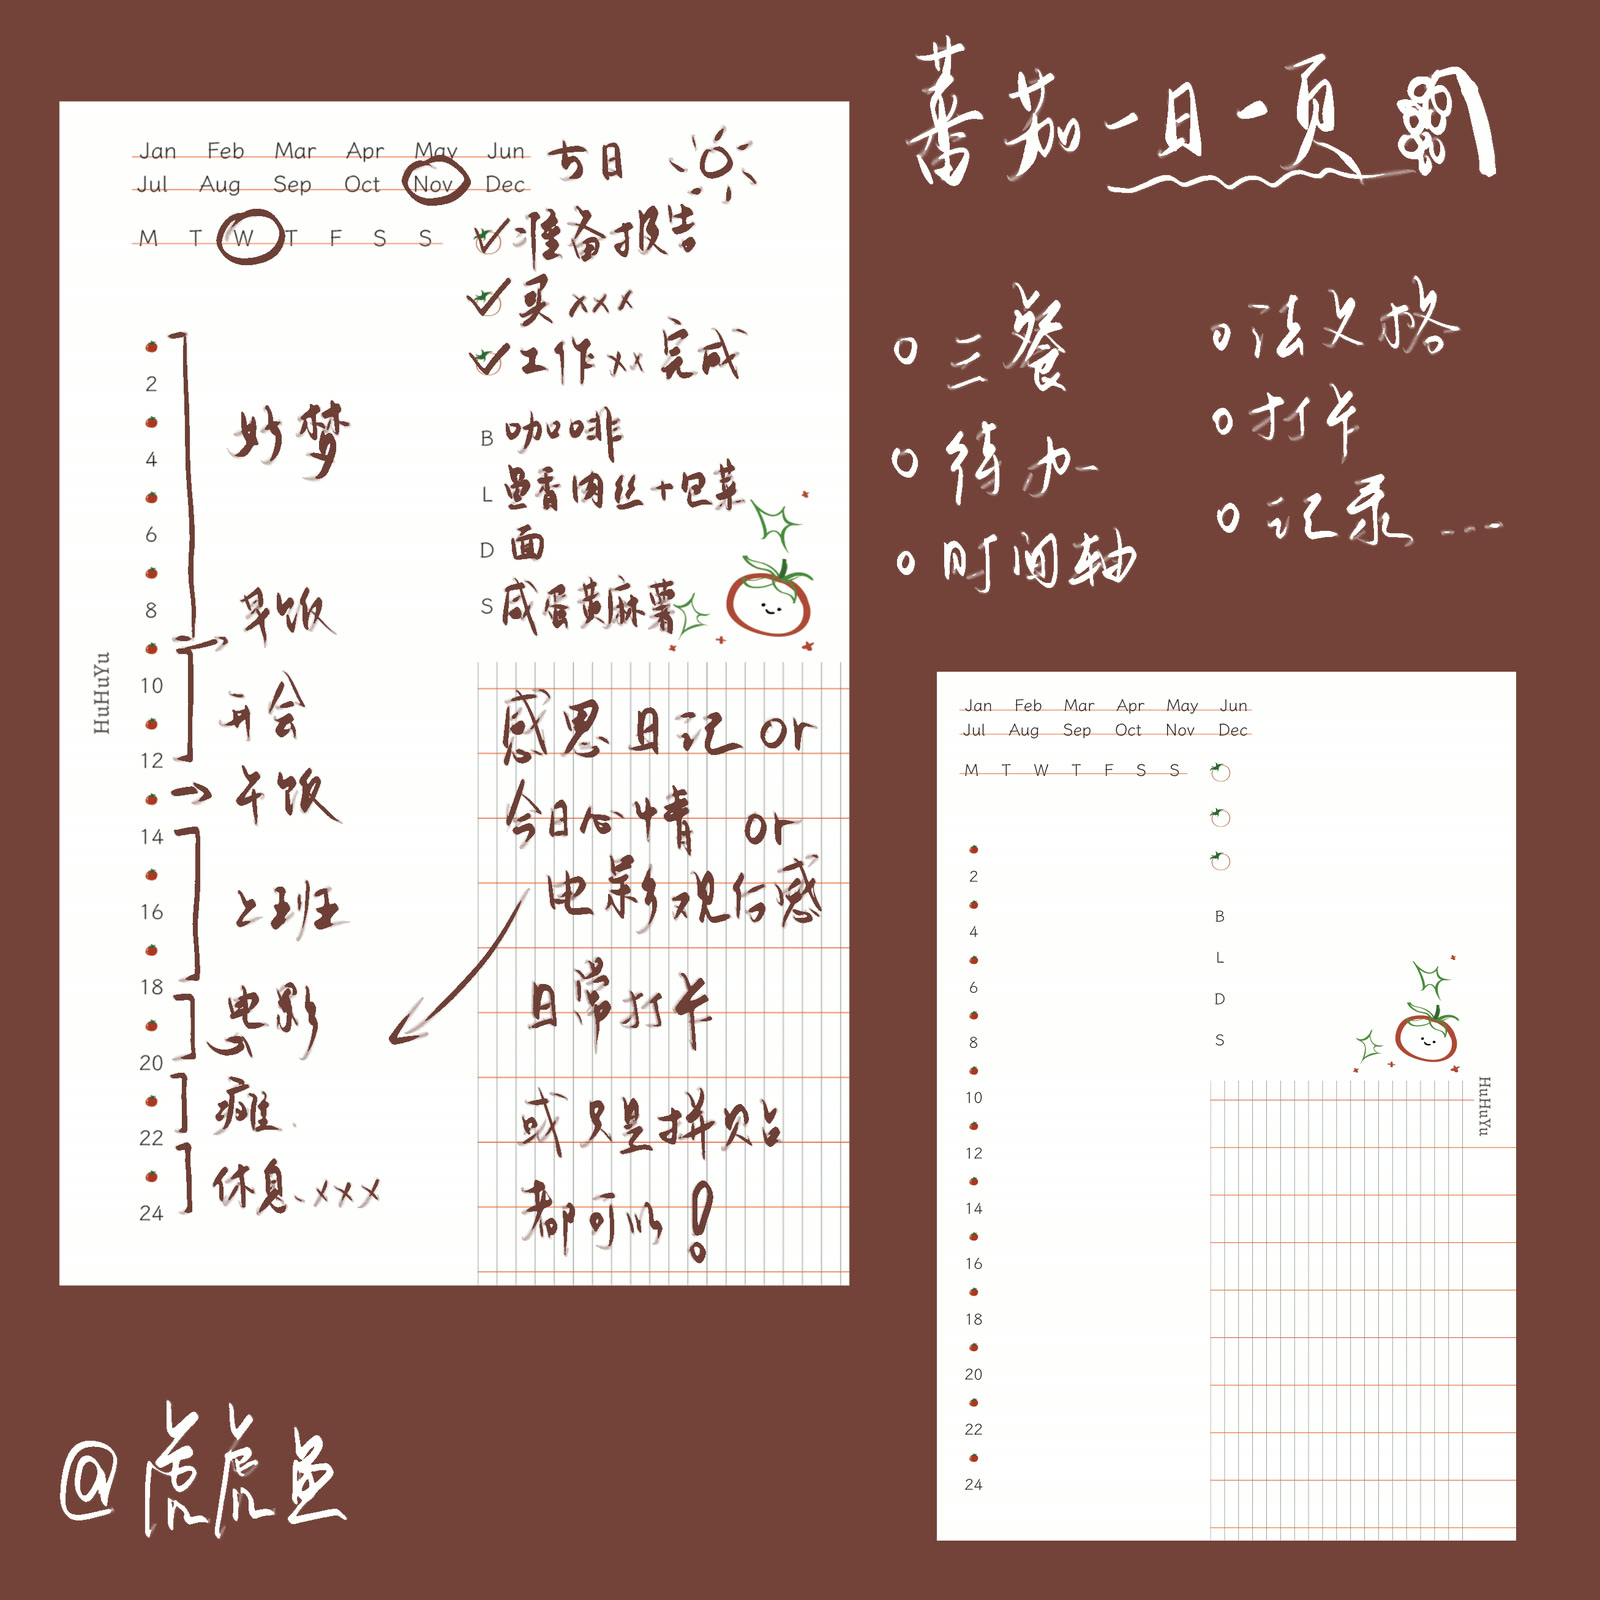 番茄一日一页
三餐
待办
时间轴
法文格
打卡
记录...
Jan Feb Mar Apr May Jun
Jul Aug Sep Oct Nov Dec
M T W T F S S
5日
准备报告
买xxx
工作xx完成
B 咖啡
L 鱼香肉丝+包菜
D 面
S 咸蛋黄麻薯
2
4
6
8
10
12
14
16
18
20
22
24
好梦
早饭
开会
午饭
上班
电影
瘫
休息、xxx
HuHuYu
感恩日记 or
今日心情 or
电影观后感
日常打卡
或只是拼贴
都可以!
@虎虎鱼
Jan Feb Mar Apr May Jun
Jul Aug Sep Oct Nov Dec
M T W T F S S
2
4
6
8
10
12
14
16
18
20
22
24
B
L
D
S
HuHuYu